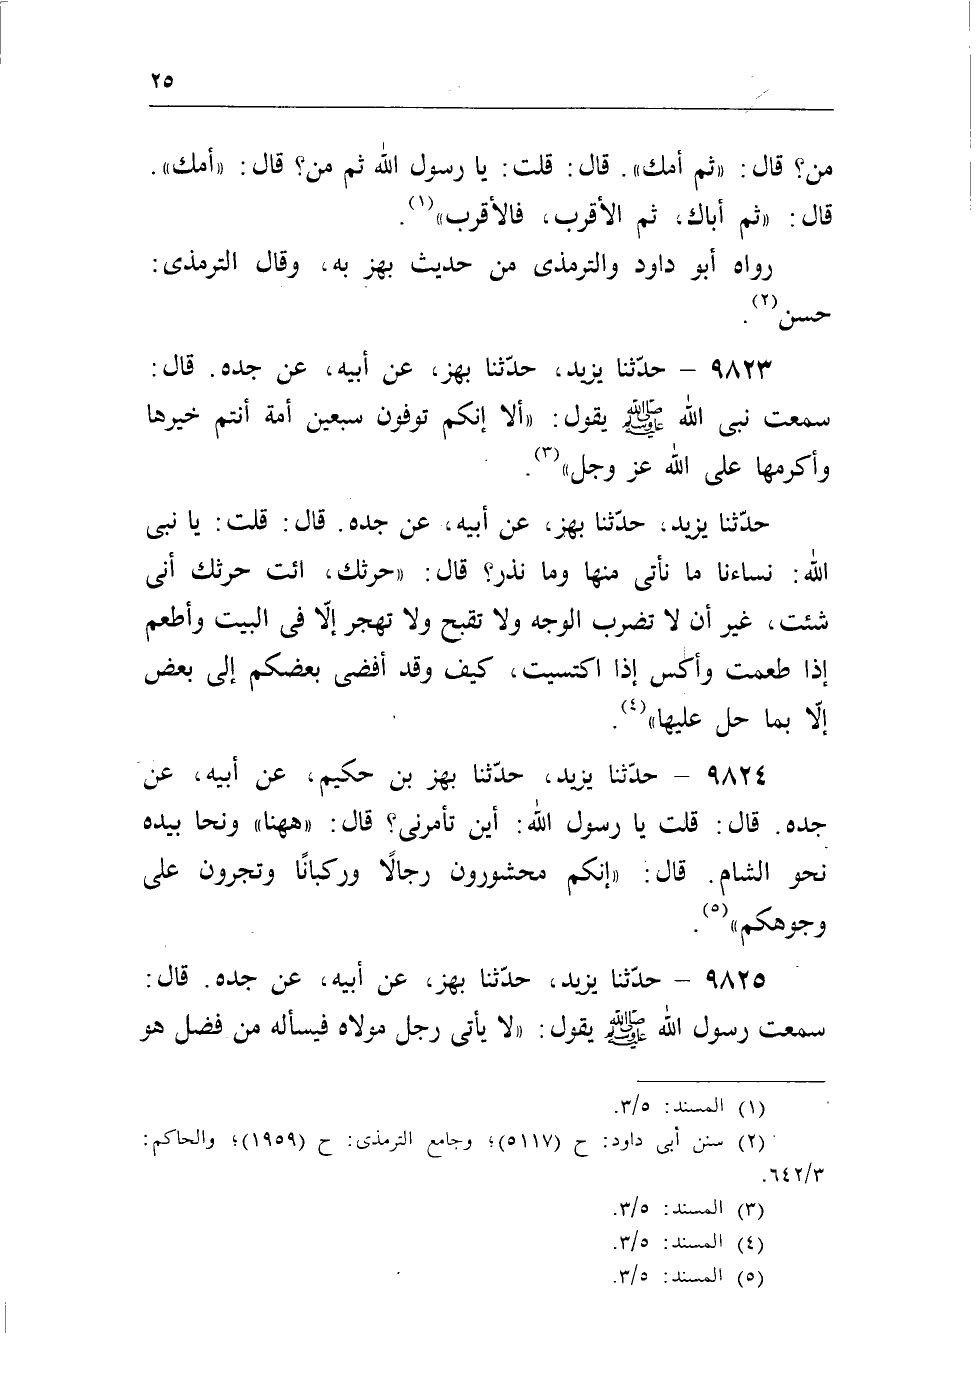 ٢٥
من؟ قال: «ثم أمك». قال: قلت: يا رسول الله ثم من؟ قال: «أمك».
قال: «ثم أباك، ثم الأقرب، فالأقرب»(١).
رواه أبو داود والترمذى من حديث بهز به، وقال الترمذى:
حسن(٢).
٩٨٢٣ – حدّثنا يزيد، حدّثنا بهز، عن أبيه، عن جده. قال:
سمعت نبى الله ﷺ يقول: «ألا إنكم توفون سبعين أمة أنتم خيرها
وأكرمها على الله عز وجل»(٣).
حدّثنا يزيد، حدّثنا بهز، عن أبيه، عن جده. قال: قلت: يا نبى
الله: نساءنا ما نأتى منها وما نذر؟ قال: «حرثك، ائت حرثك أنى
شئت، غير أن لا تضرب الوجه ولا تقبح ولا تهجر إلّا فى البيت وأطعم
إذا طعمت وأكس إذا اكتسيت، كيف وقد أفضى بعضكم إلى بعض
إلّا بما حل عليها»(٤).
٩٨٢٤ – حدّثنا يزيد، حدّثنا بهز بن حكيم، عن أبيه، عن
جده. قال: قلت يا رسول الله: أين تأمرنى؟ قال: «ههنا» ونحا بيده
نحو الشام. قال: «إنكم محشورون رجالًا وركبانًا وتجرون على
وجوهكم»(٥).
٩٨٢٥ – حدّثنا يزيد، حدّثنا بهز، عن أبيه، عن جده. قال:
سمعت رسول الله ﷺ يقول: «لا يأتى رجل مولاه فيسأله من فضل هو
(١) المسند: ٣/٥.
(٢) سنن أبى داود: ح (٥١١٧)؛ وجامع الترمذى: ح (١٩٥٩)؛ والحاكم:
٦٤٢/٣.
(٣) المسند: ٣/٥.
(٤) المسند: ٣/٥.
(٥) المسند: ٣/٥.